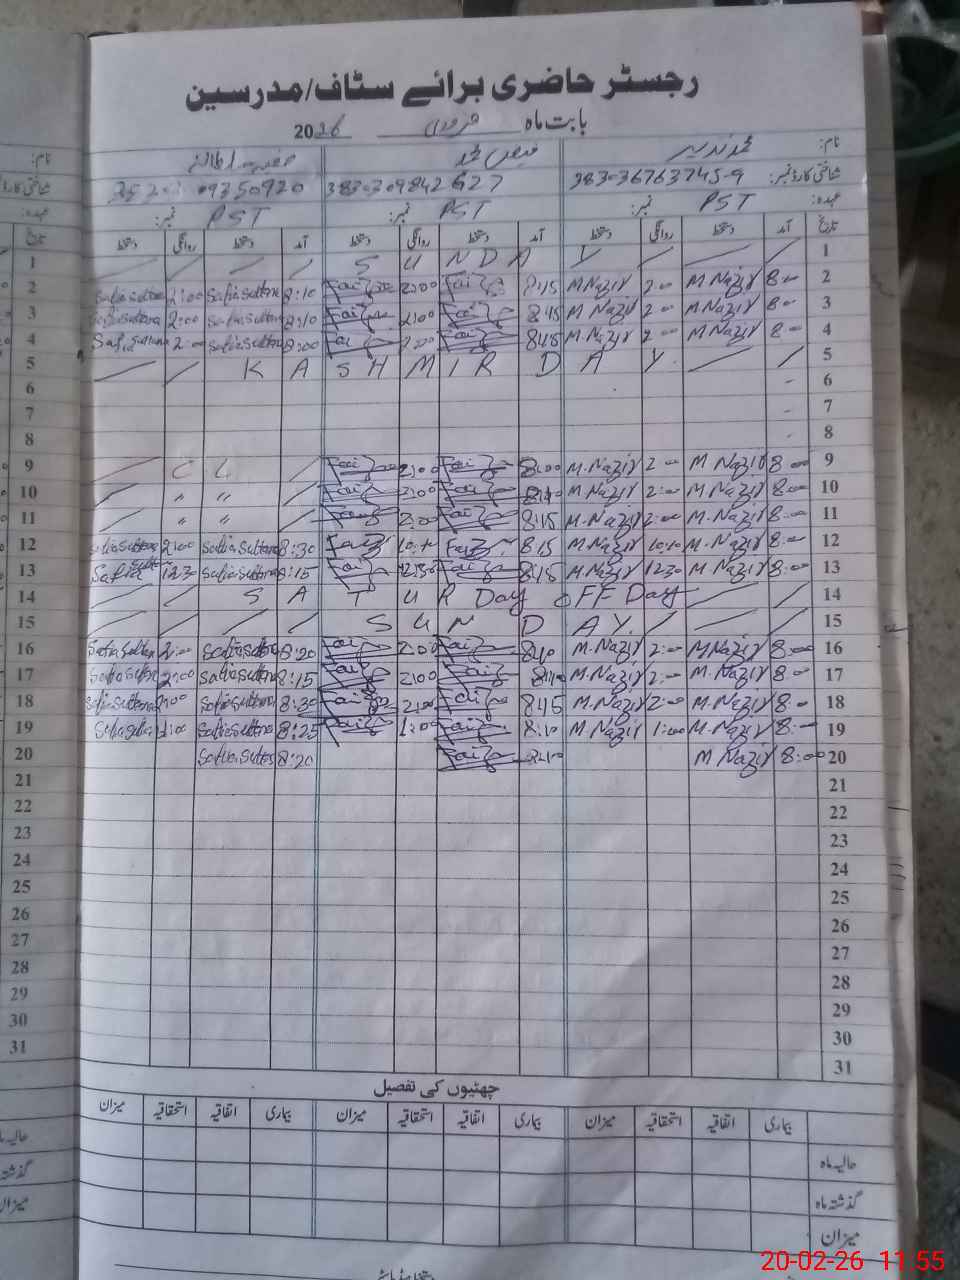 رجسٹر حاضری برائے سٹاف/مدرسین
بابت ماہ فروری 2026
نام: محمد نذیر فیض محمد صفیہ سلطانہ
شناختی کارڈ نمبر: 383-309842627
عہدہ: PST نمبر: PST نمبر: PST نمبر:
تاریخ آمد دستخط روانگی دستخط آمد دستخط روانگی دستخط آمد دستخط روانگی دستخط
1 S U N D A Y
2 Safia Sultana 2:00 Safia Sultana 8:10 Faiz 2:00 Faiz 8:15 M.Nazir 2:00 M.Nazir 8:00
3 Safia Sultana 2:00 Safia Sultana 8:10 Faiz 2:00 Faiz 8:15 M.Nazir 2:00 M.Nazir 8:00
4 Safia Sultana 2:00 Safia Sultana 8:00 Faiz 2:00 Faiz 8:15 M.Nazir 2:00 M.Nazir 8:00
5 K A S H M I R D A Y
6
7
8
9 C L Faiz 2:00 Faiz 8:00 M.Nazir 2:00 M.Nazir 8:00
10 " " Faiz 2:00 Faiz 8:10 M.Nazir 2:00 M.Nazir 8:00
11 " " Faiz 2:00 Faiz 8:15 M.Nazir 2:00 M.Nazir 8:00
12 Safia Sultana 2:00 Safia Sultana 8:30 Faiz 10:10 Faiz 8:15 M.Nazir 10:10 M.Nazir 8:00
13 Safia Sultana 12:30 Safia Sultana 8:15 Faiz 12:30 Faiz 8:15 M.Nazir 12:30 M.Nazir 8:00
14 S A T U R Day OFF Day
15 S U N D A Y
16 Safia Sultan 2:00 Safia Sultana 8:20 Faiz 2:00 Faiz 8:10 M.Nazir 2:00 M.Nazir 8:00
17 Safia Sultan 2:00 Safia Sultana 8:15 Faiz 2:00 Faiz 8:10 M.Nazir 2:00 M.Nazir 8:00
18 Safia Sultana 2:00 Safia Sultana 8:30 Faiz 2:00 Faiz 8:15 M.Nazir 2:00 M.Nazir 8:00
19 1:00 Safia Sultana 8:25 Faiz 1:00 Faiz 8:10 M.Nazir 1:00 M.Nazir 8:00
20 Safia Sultana 8:20 Faiz 8:10 M Nazir 8:00
21
22
23
24
25
26
27
28
29
30
31
چھٹیوں کی تفصیل
بیماری اتفاقیہ استحقاقیہ میزان بیماری اتفاقیہ استحقاقیہ میزان بیماری اتفاقیہ استحقاقیہ میزان
حالیہ ماہ
گذشتہ ماہ
میزان
20-02-26 11:55